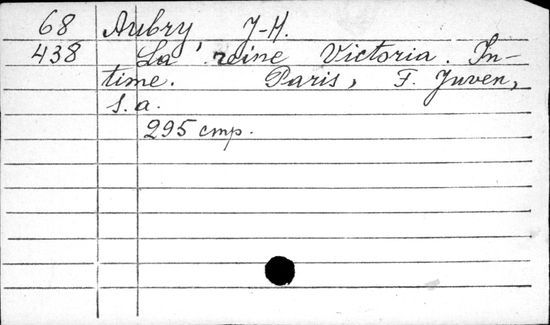 68 Aubry J-H.
438 La reine Victoria. In-
time. Paris, F. Juven,
s. a.
295 стр.